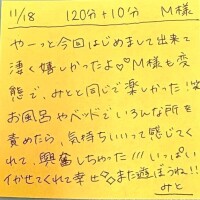 11/18 120分+10分 M様
やーっと今回はじめまして出来て
凄く嬉しかったよ♡♡M様も変
態で、みとと同じで楽しかった!笑
お風呂やベッドでいろんな所を
責めたら、気持ちいいって感じてく
れて、興奮しちゃった///いっぱい
イかせてくれて幸せ◇また遊ぼうね!!
みと